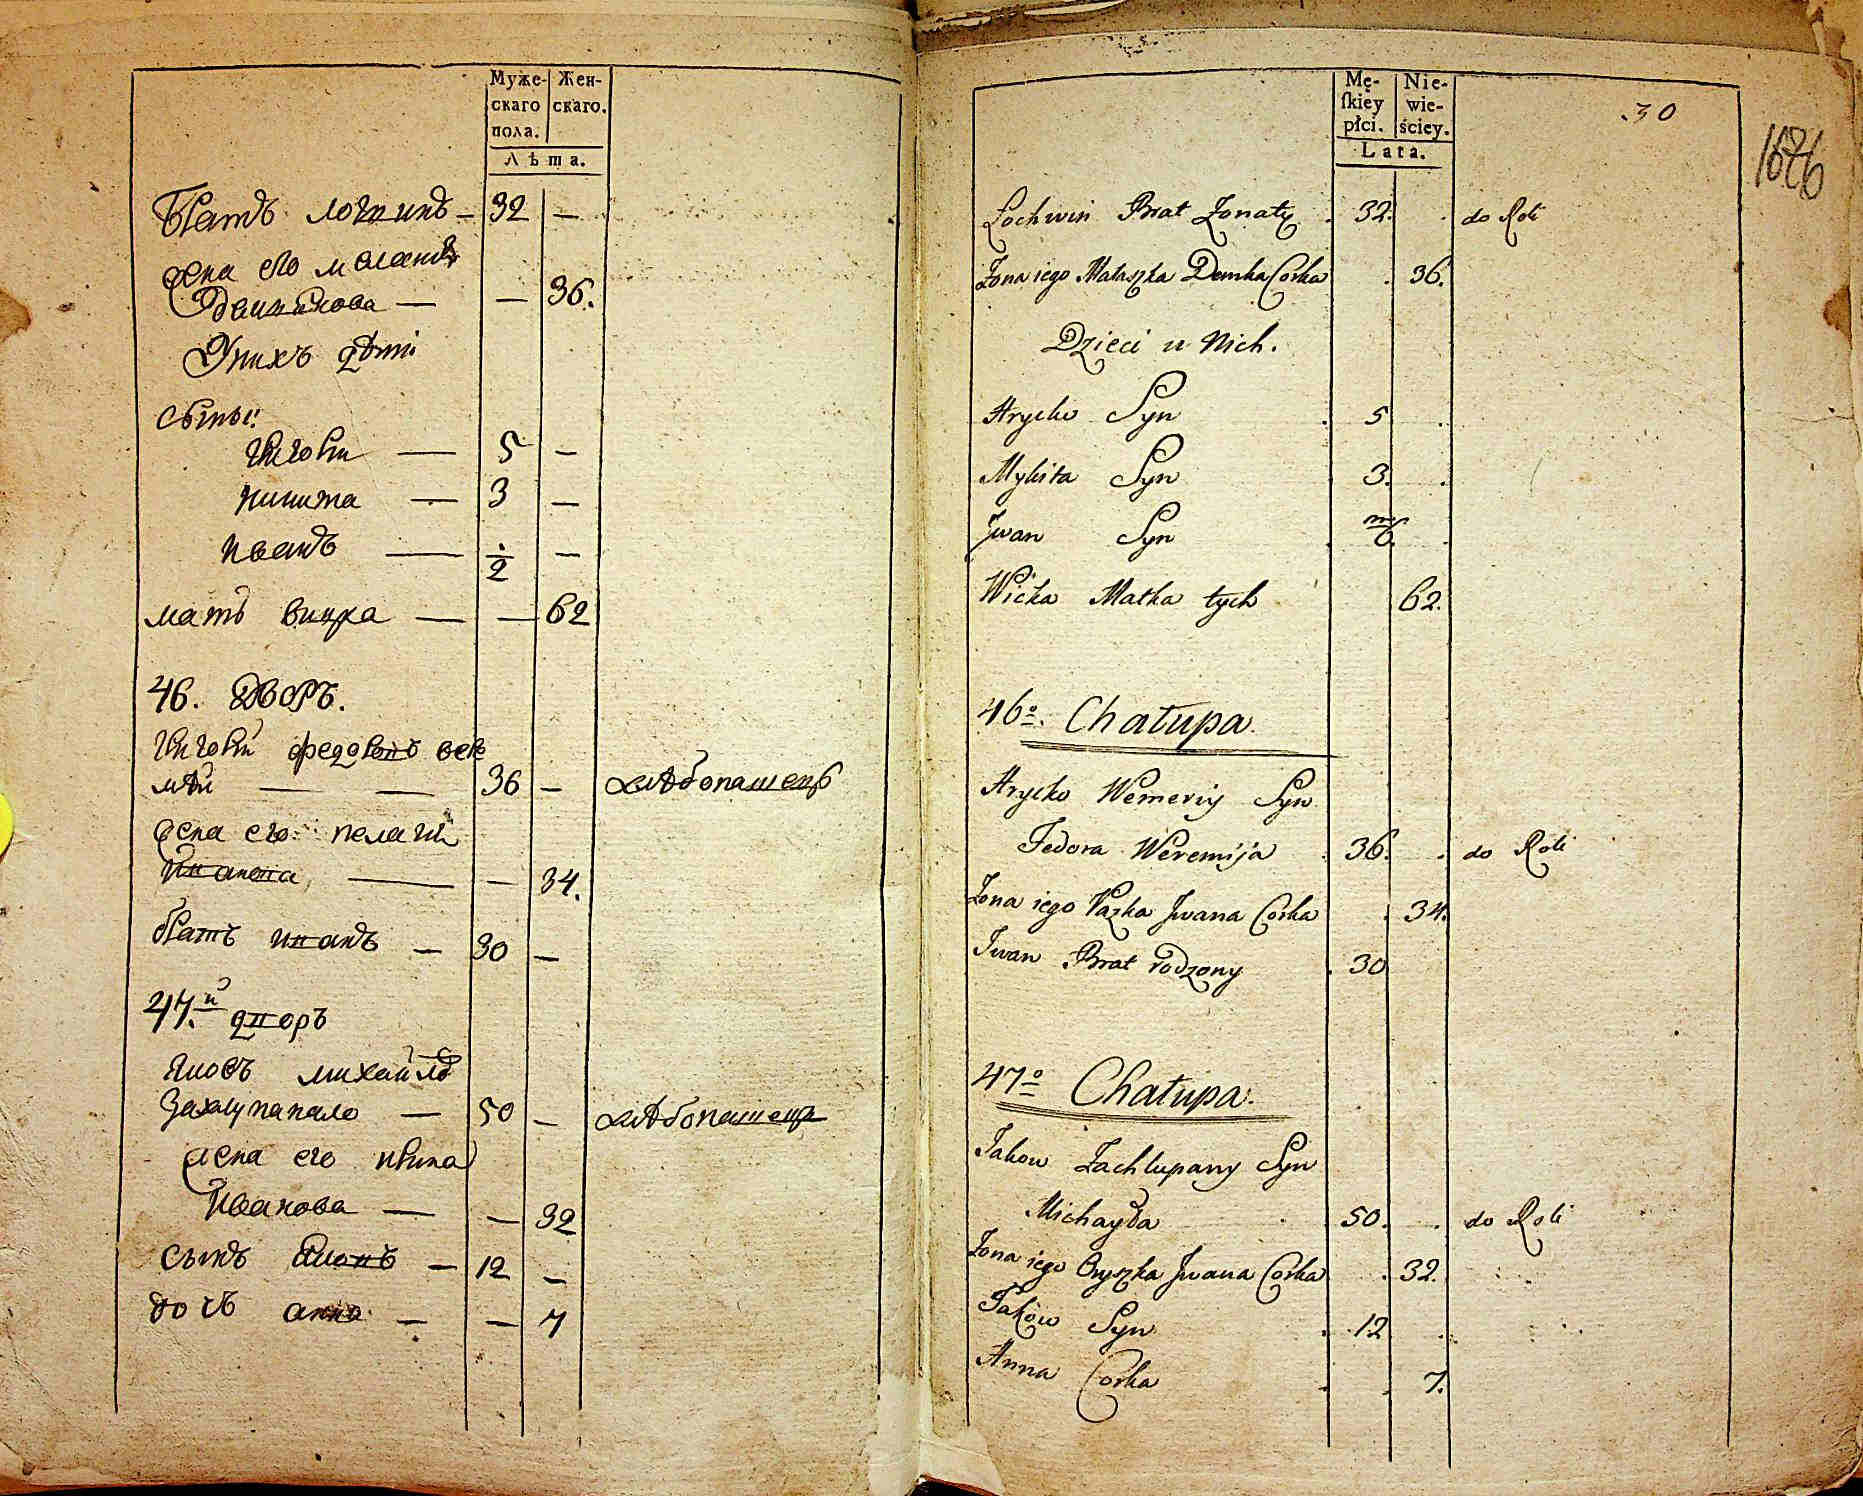 Муже- Жен-
скаго скаго.
пола.
Лѣта.
Братъ логвинъ — 32 —
жена его меланія
Демянова — — 36.
У нихъ дѣти
сыны:
григорій — 5 —
никита — 3 —
иванъ — 1/2 —
мать вицка — — 62
46. Дворъ.
григорій федоровъ вере
мѣй — — 36 — хлѣбопашецъ
жена его пелагія
иванова, — — 34.
братъ иванъ — 30 —
47.й дворъ
яковъ михайловъ
захлупанало — 50 — хлѣбопашецъ
жена его ирина
иванова — — 32
сынъ яковъ — 12 —
дочь анна — — 7
Mę- Nie-
skiey wie-
płci. ściey.
Lata.
.30
1676
Łochwin Brat Żonaty . 32. . do Roli
Żona iego Małaszka Demka Corka . 36.
Dzieci u Nich.
Hrycko Syn . 5 .
Mykita Syn . 3. .
Jwan Syn . m/6. .
Wicka Matka tych 62.
46o. Chałupa.
Hrycko Weremiy Syn
Fedora Weremija . 36. . do Roli
Żona iego Pazka Jwana Corka . 34.
Iwan Brat rodzony . 30
47o Chałupa.
Jakow Zachlupany Syn
Michayła . 50. . do Roli
Żona iego Oryszka Jwana Corka . 32.
Jakow Syn . 12 .
Anna Corka . . 7.